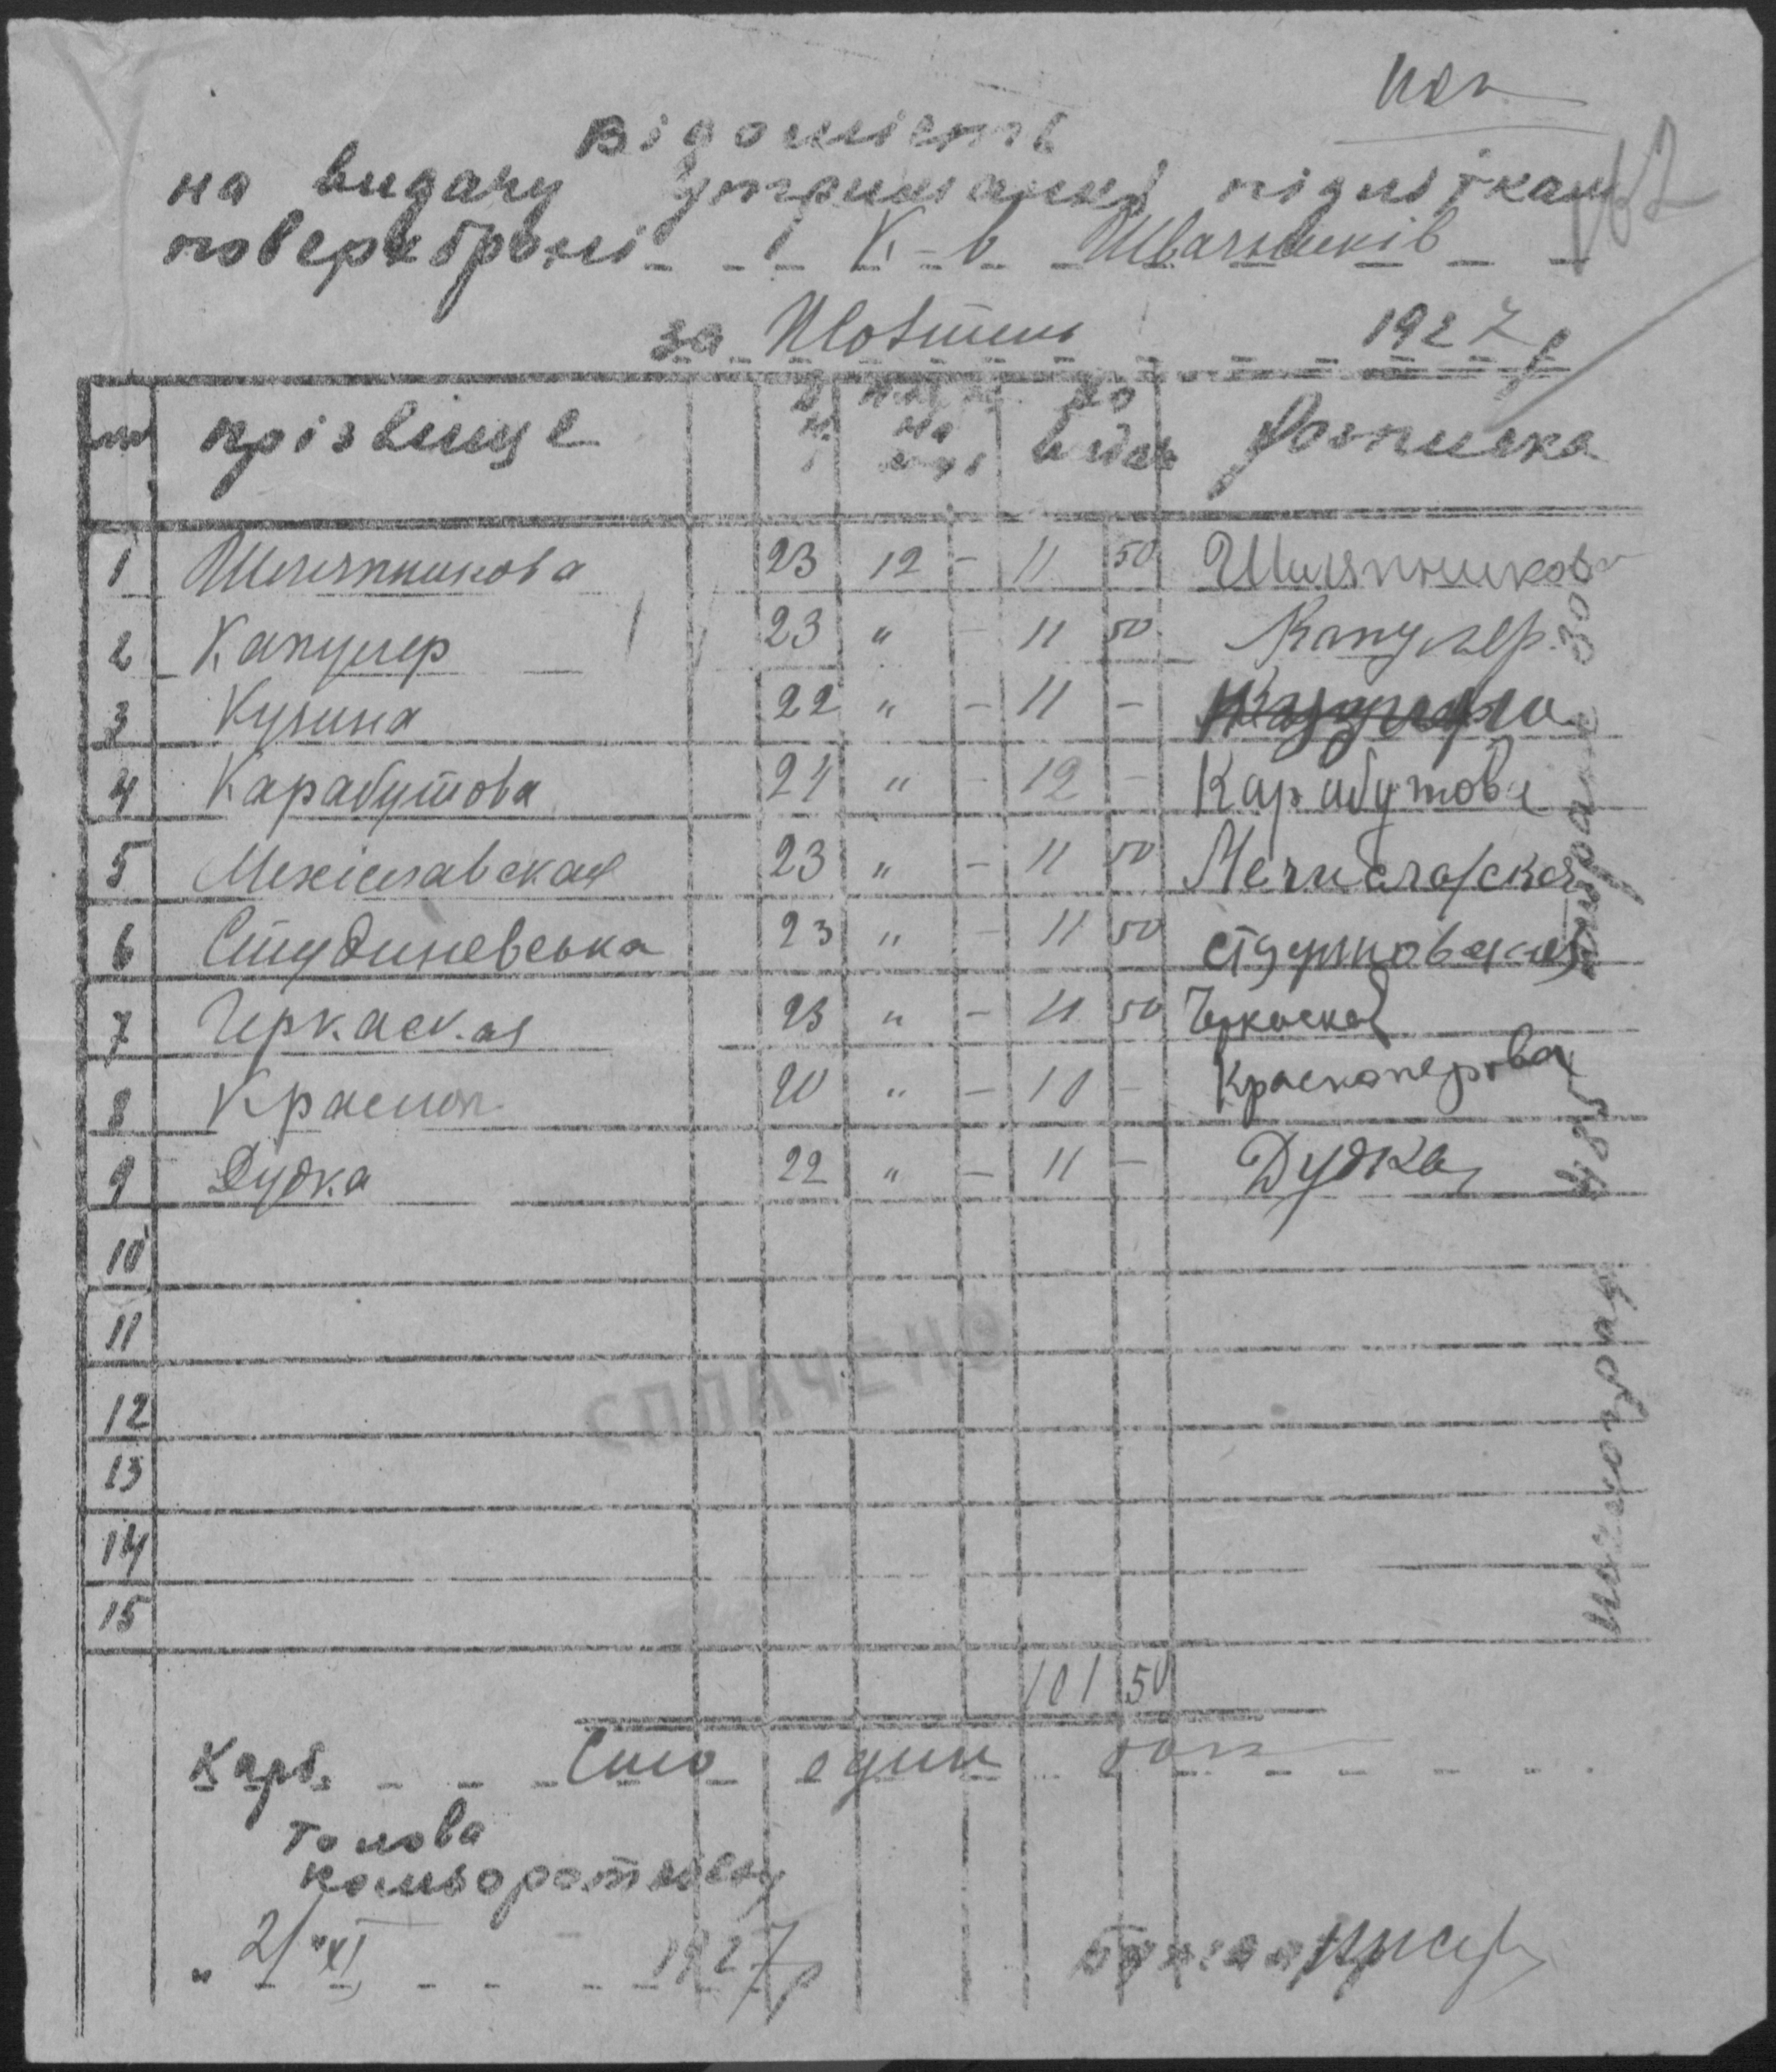 Відомість
на видачу утримання підліткам
поверх броні 1 К-в Швачників
за Жовтень 1927 р
№ прізвище Дні на До видачі Розписка
1 Шляпникова 23 12 - 11 50 Шляпникова
2 Капулер 23 " - 11 50 Капулер.
3 Кузина 22 " - 11 -
4 Карабутова 24 " - 12 - Карабутова
5 Межіславская 23 " - 11 50 Мечиславская
6 Студиневська 23 " - 11 50
7 Черкаская 23 " - 11 50 Черкаская
8 Красноп. 20 " - 10 - Красноперова
9 Дудка 22 " - 11 - Дудка
10
11
12
СПЛАЧЕНО
13
14
15
101 50
Карб. Сто один 50 к
Голова
" 21 " XI 1927 р Бухгалтер